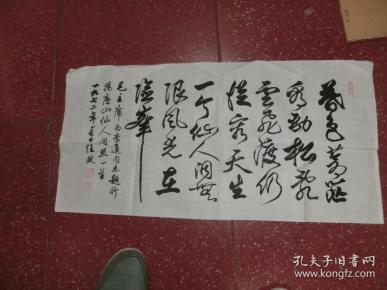 暮色苍茫
看劲松乱
云飞渡仍
从容天生
一个仙人洞无
限风光在
险峰
毛主席为李进同志题所
摄庐山仙人洞照一首
一九七二年春日任政
孔夫子旧书网